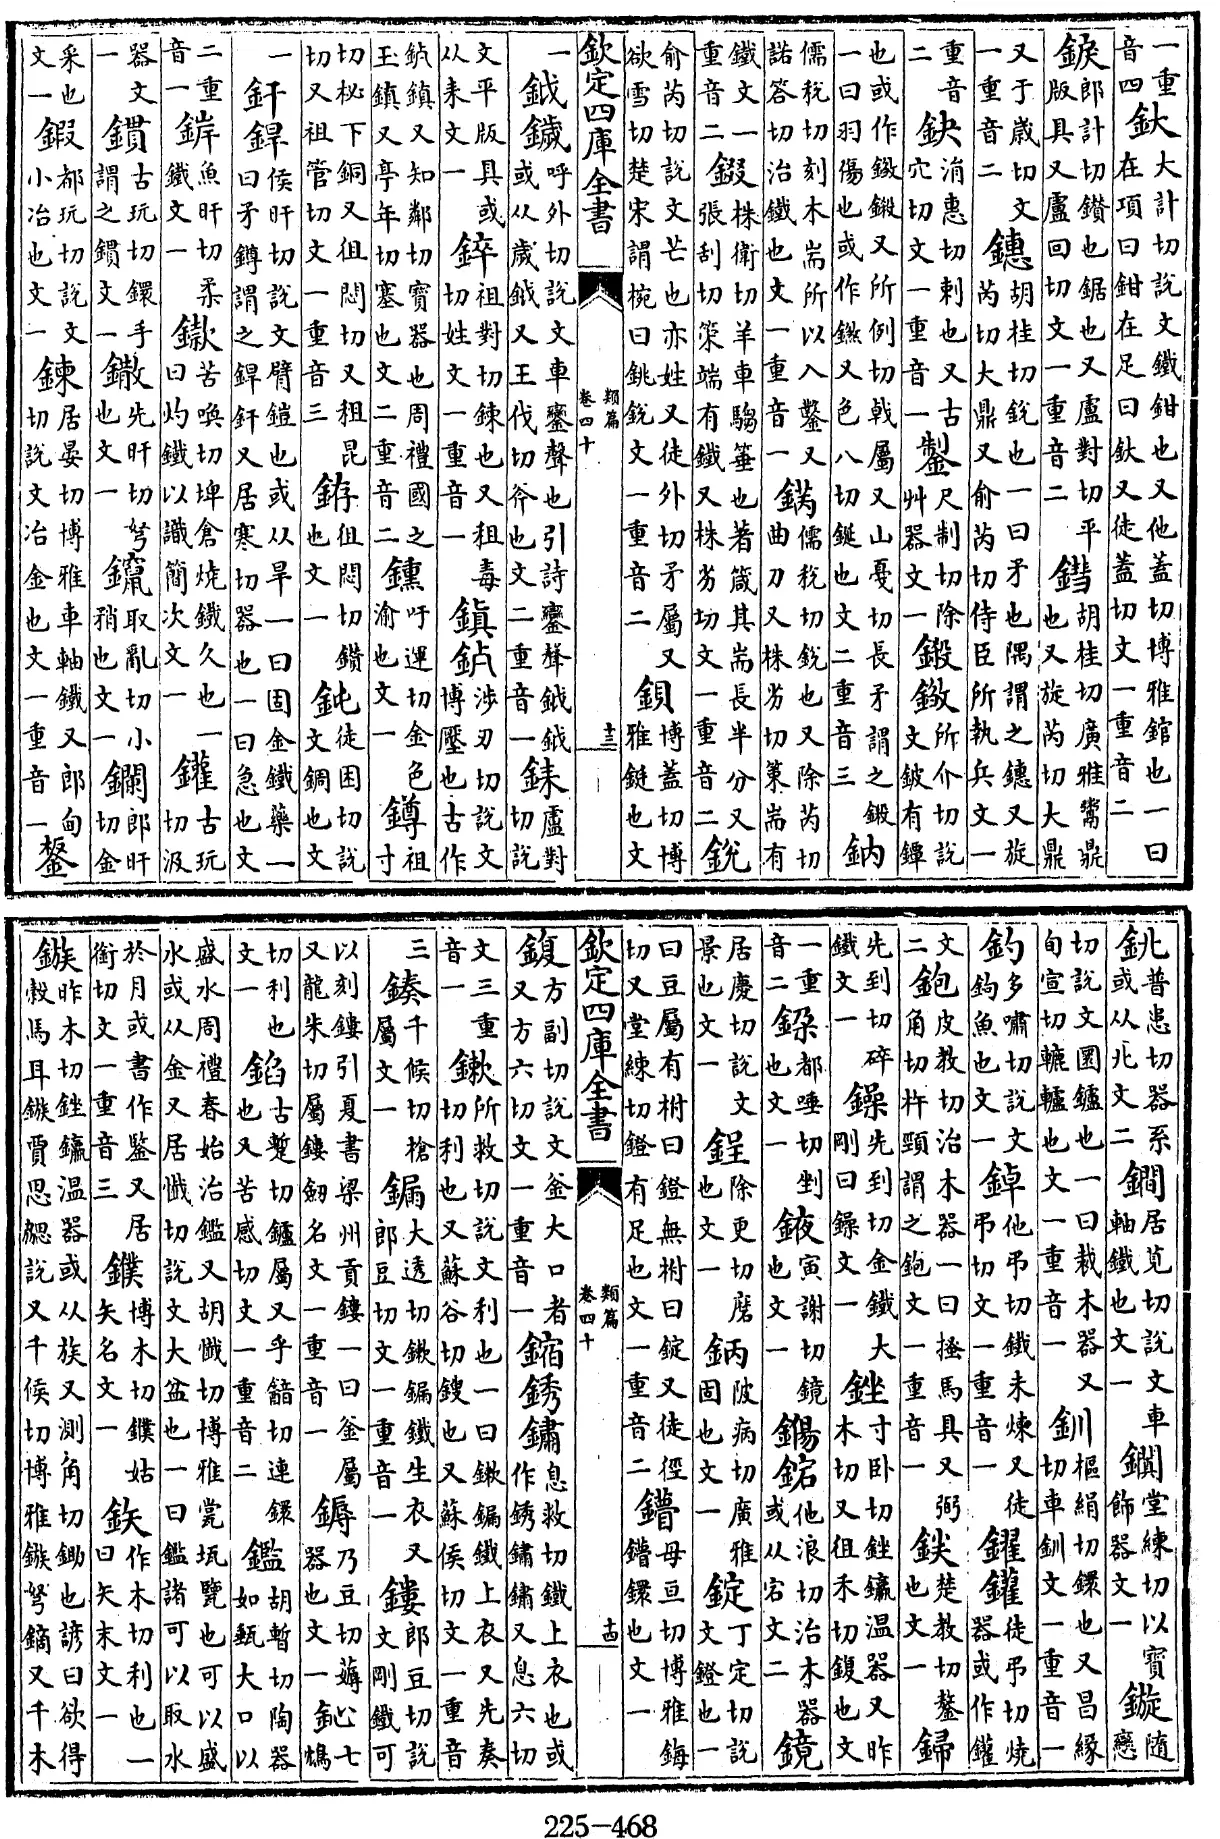 一重音四釱大計切說文鐵鉗也又他蓋切博雅錧也一曰在項曰鉗在足曰釱又徒蓋切文一重音二
錑郎計切鑽也鋸也又盧對切平版具又盧回切文一重音二鏏胡桂切廣雅鬵鼎也又旋芮切大鼎
又于歲切文一重音二鏸胡桂切銳也一曰矛也隅謂之鏸又旋芮切大鼎又俞芮切侍臣所執兵文一
重音二鈌消惠切刺也又古穴切文一重音一尺制切除艸器文一鎩所介切說文鈹有鐔
也或作鎩又所例切戟屬又山戞切長矛謂之鎩一曰羽傷也或作又色八切鋋也文二重音三鈉
儒稅切刻木耑所以入鑿又諾答切治鐵也文一重音一儒稅切銳也又除芮切曲刀又株劣切䇿耑有
鐵文一重音二錣株衛切羊車騶箠也著箴其耑長半分又張刮切策端有鐵又株劣切文一重音二銳
俞芮切說文芒也亦姓又徒外切矛屬又欲雪切楚宋謂椀曰銚銳文一重音二鋇博蓋切博雅鋌也文
欽定四庫全書 類篇卷四十 十三
一鉞鐬呼外切說文車鑾聲也引詩鑾聲鉞鉞或从歲鉞又王伐切斧也文二重音一銇盧對切說
文平版具或从耒文一錊祖對切鍊也又祖毒切姓文一重音一鎮陟刃切說文博壓也古作
鎮又知鄰切寶器也周禮國之玉鎮又亭年切塞也文二重音二鑂吁運切金色渝也文一鐏祖寸
切柲下銅又徂悶切又祖昆切又祖管切文一重音三銌徂悶切鑽也文一鈍徒困切說文錭也文
一釬銲侯旰切說文臂鎧也或以旱一曰固金鐵藥一曰矛鐏謂之銲釬又居寒切器也一曰急也文
二重音一魚旰切柔鐵文一苦喚切埤倉燒鐵久也一曰灼鐵以識簡次文一鑵古玩切汲
器文一鏆古玩切鐶手謂之鏆文一鏾先旰切弩也文一鑹取亂切小矟也文一鑭郎旰切金
采也文一鍜都玩切說文小冶也文一鍊居晏切博雅車軸鐵又郎甸切說文冶金也文一重音一鋬
普患切器系或从兆文二鐧居莧切說文車軸鐵也文一堂練切以寶飾器文一鏇隨戀
切說文圜鑪也一曰裁木器又旬宣切轆轤也文一重音一釧樞絹切鐶也又昌緣切車釧文一重音一
釣多嘯切說文鉤魚也文一鋽他弔切鐵未煉又徒弔切文一重音一鑃徒弔切燒器或作文
二鉋皮教切治木器一曰搔馬具又弼角切杵頸謂之鉋文一重音一楚教切鏊也文一
先到切碎鐵文一鐰先到切金鐵大剛曰鐰文一銼寸臥切銼鑪溫器又昨木切又徂禾切鍑也文
一重音二鍨都唾切剉也文一寅謝切鏡也文一鐊他浪切治木器或从宕文二鏡
居慶切說文景也文一鋥除更切磨也文一鈵陂病切廣雅固也文一錠丁定切說文鐙也一
曰豆屬有柎曰鐙無柎曰錠又徒徑切又堂練切鐙有足也文一重音二母亘切博雅鋂鐶也文一
欽定四庫全書 類篇卷四十 十四
鍑方副切說文釜大口者又方六切文一重音一鏥銹鏽息救切鐵上衣也或作銹鏽鏽又息六切
文三重音一鏉所救切說文利也一曰鏉鐵上衣又先奏切利也又蘇谷切鎪也又蘇侯切文一重音
三鏃千候切槍屬文一鏥大透切鏉鐵生衣又郎豆切文一重音一鏤郎豆切說文剛鐵可
以刻鏤引夏書梁州貢鏤一曰釜屬又龍朱切屬鏤劒名文一重音一鎒乃豆切薅器也文一七鴆
切利也文一錎古蹔切鑪屬又乎韽切連鐶也又苦感切文一重音二鑑胡暫切陶器如甄大口以
盛水周禮春始治鑑又胡懺切博雅瓽瓨甖也可以盛水或从金又居懺切說文大盆也一曰鑑諸可以取水
於月或書作鍳又居銜切文一重音三鏷博木切鏷姑矢名文一鉃作木切利也一曰矢末文一
鏃昨木切銼鑪溫器或从族又測角切鋤也諺曰欲得穀馬耳鏃賈思勰說又千侯切博雅鏃弩鏑又千木
225-468